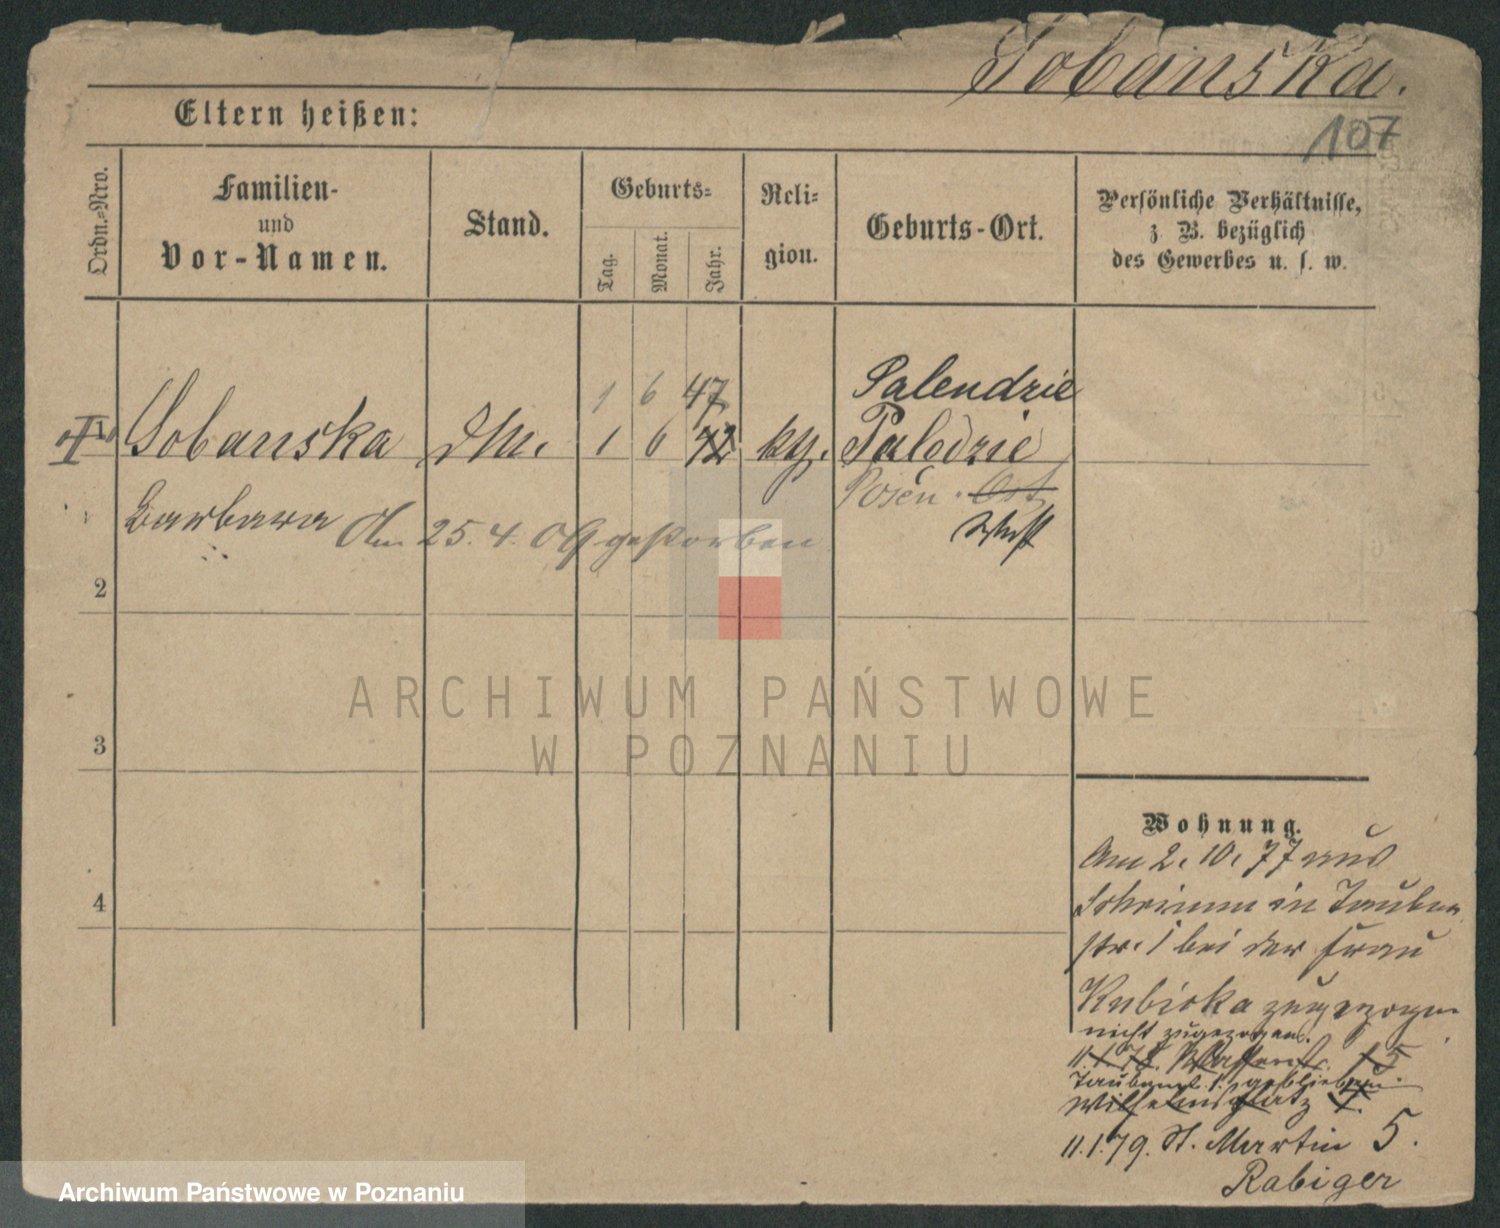 Sobanska.
107
Eltern heißen:
Ordn.=Nro.
Familien-
und
Vor-Namen.
Stand.
Geburts=
Tag.
Monat.
Jahr.
Reli=
gion.
Geburts-Ort.
Persönliche Verhältnisse,
z. B. bezüglich
des Gewerbes u. s. w.
1 6 47 Palendzie
Sobanska DM. 1 6 72 kth. Palędzie
Barbara Posen Ost
West
Am 25. 4. 09 gestorben
2
3
4
Wohnung.
Am 2. 10. 77 aus
Schrimm in Tauben
str. 1 bei der Frau
Kubicka zugezogen
nicht zugezogen.
11. 1. 78. 15
Taubenst. 1. geblieben.
Wilhelmsplatz
11. 1. 79. St. Martin 5.
Rabiger
ARCHIWUM PAŃSTWOWE
W POZNANIU
Archiwum Państwowe w Poznaniu